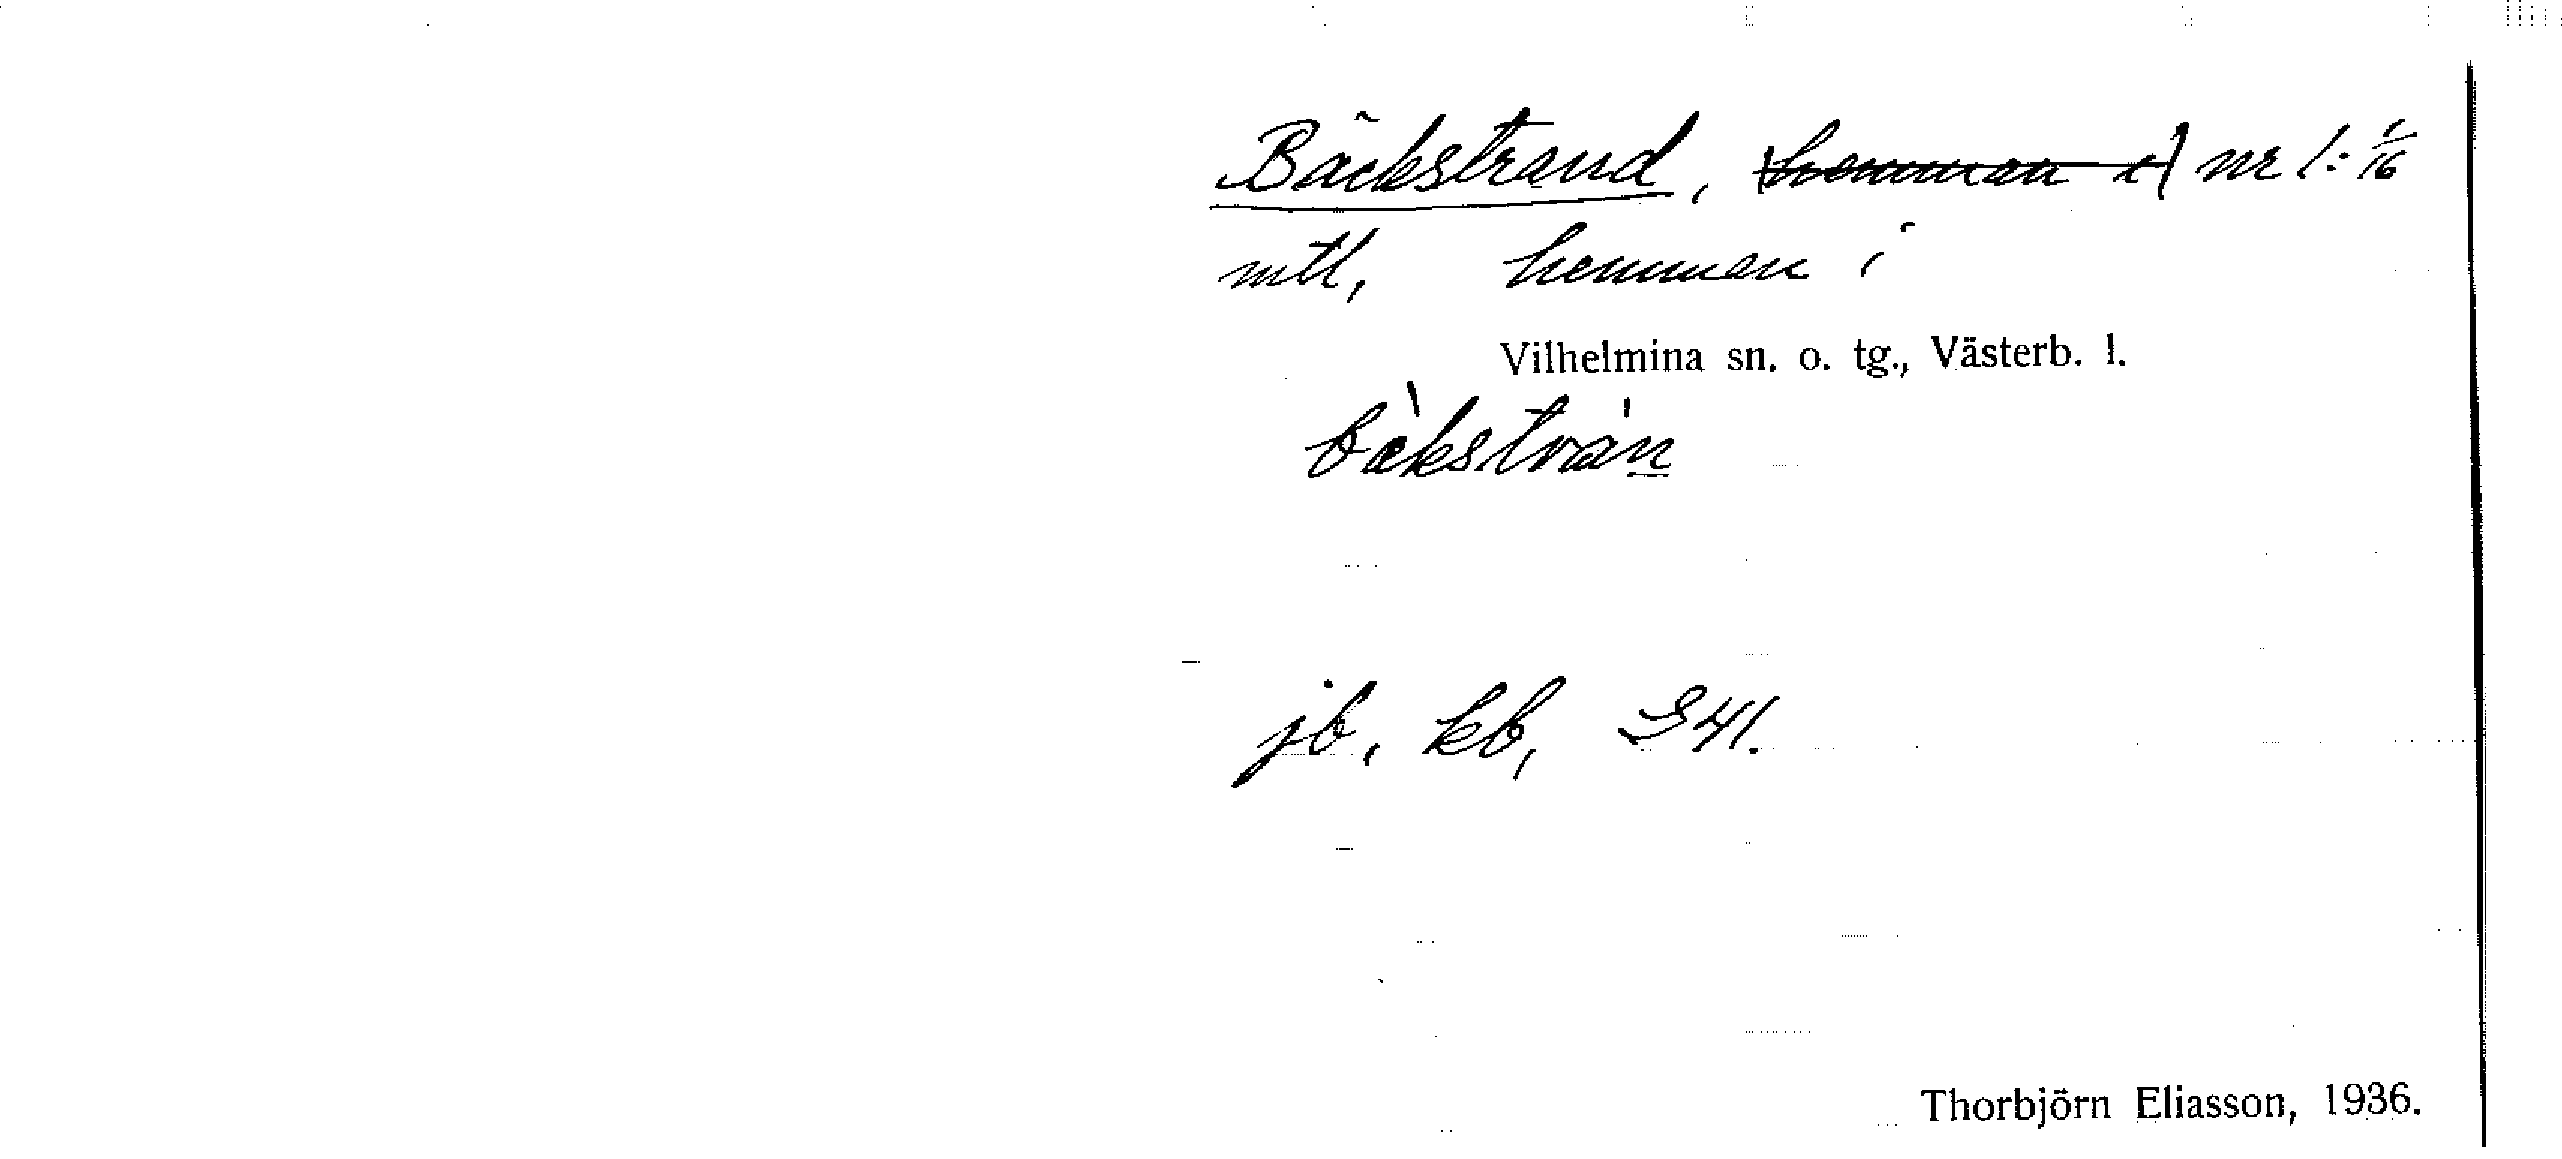 Bäckstrand, (hemman i) nr 1: 1/16
mtl, hemman i
Vilhelmina sn. o. tg., Västerb. l.
bὲkstrán
jb, kb, S41.
Thorbjörn Eliasson, 1936.